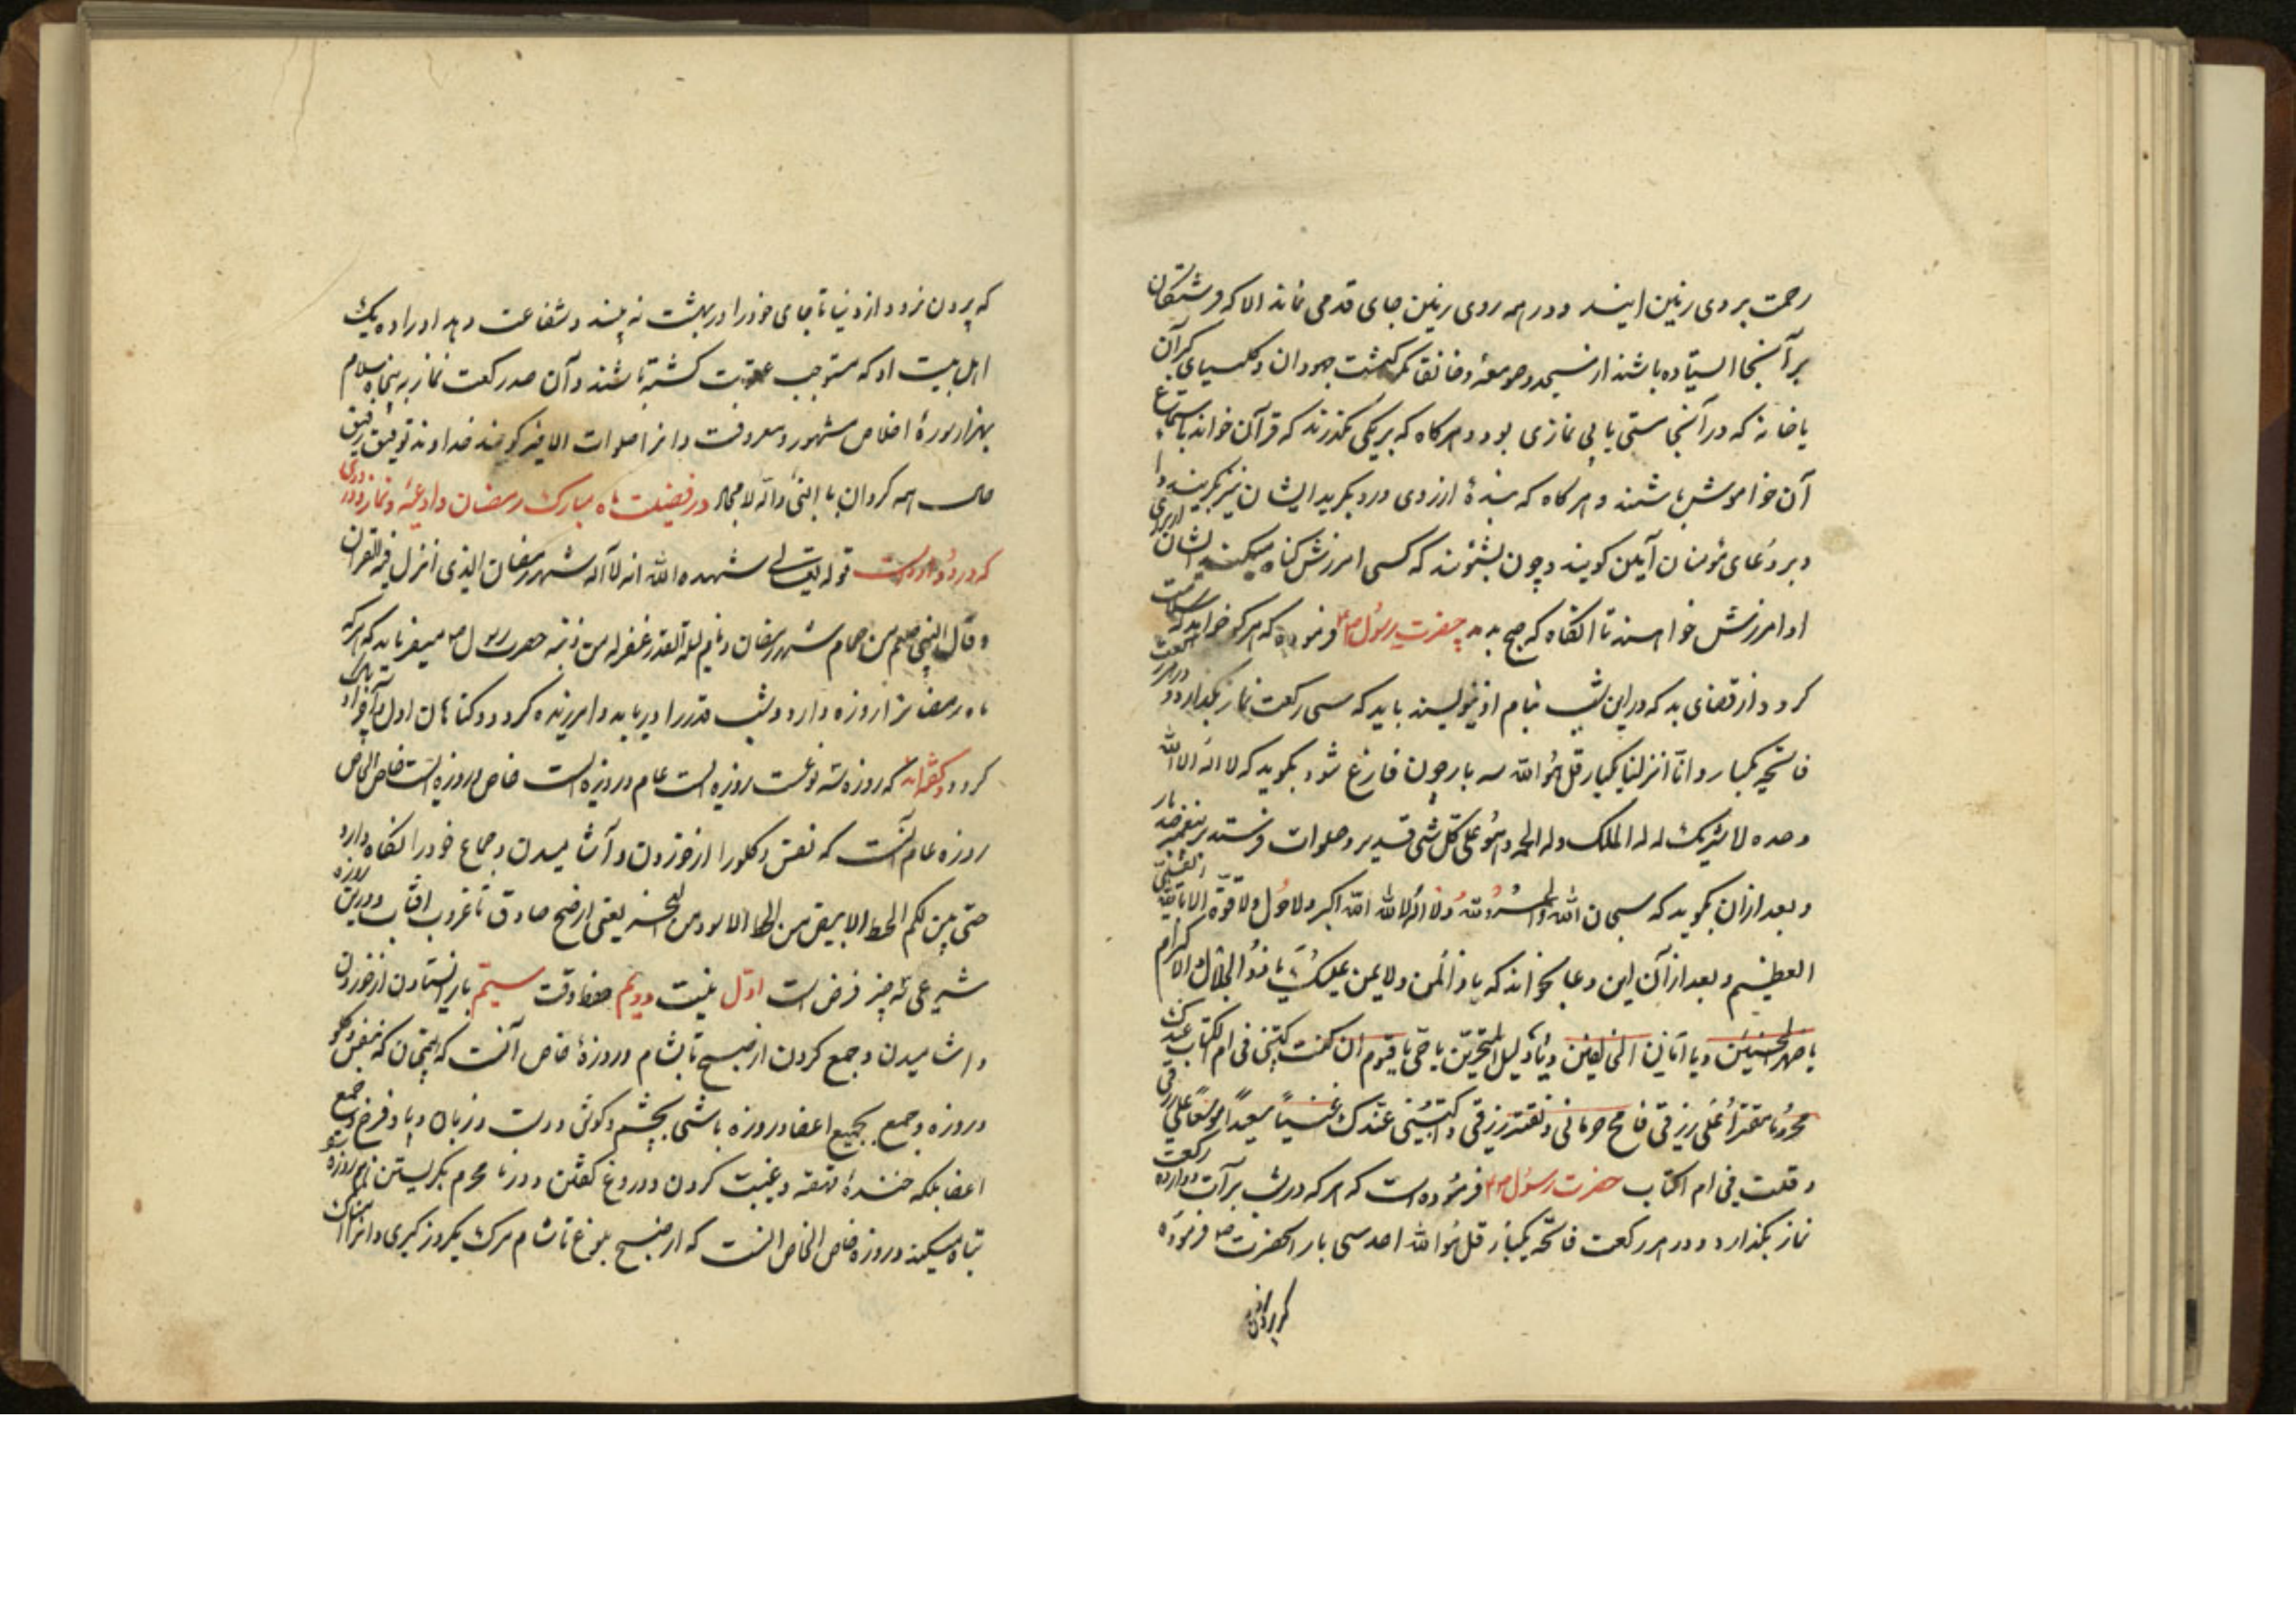 رحمت بر روی زمین ایند و در همه روی زمین جای قدمی نماند الا که فرشتگان
بر آنجا ایستاده باشند از مسجد و صومعه و خانقا مکر کنشت جهودان و کلیسیای کبرآن
یا خانه که در آنجا ستی یا بی نمازی بود و هرکاه که بر یکی بکذرند که قرآن خواند باستماع
آن خواموش باشند و هرکاه که بندهٔ از روی درد بکرید ایشان نیز بکریند و از برای
و بر دعای مؤمنان آمین کویند و چون بشنوند که کسی امرزش کناه میکند ایشان
او امرزش خواهند تا انکاه که صبح بدمد حضرت رسول فرموده که هر که خواهد که سلامت
کردد از قضای بد که در این شب بنام او نویسند باید که سی رکعت نماز بکذارد و در هر رکعت
فاتحه یکبار و انا انزلنا یکبار قل هو الله سه بار چون فارغ شود بکوید که لا اله الا الله
وحده لا شریک له له الملک وله الحمد وهو علی کل شی قدیر و صلوات فرستد بر پیغمبر صد بار
و بعد از ان بکوید که سبحان الله والحمد لله ولا اله الا الله الله اکبر ولا حول ولا قوة الا بالله العلی
العظیم و بعد از آن این دعا بخواند که یا ذا لمن ولا یمن علیک یا ذو الجلال والاکرام
یا ظهر اللاجئین و یا امان الخایفین و یا دلیل المتحیرین یا حی یا قیوم ان کنت کتبتنی فی ام الکتاب عندک
محروما مقترا علی رزقی فامح حرمانی و تقتیر رزقی و اکتبنی عندک غنیا سعیدا موسعا علی رزقی
و قلت فی ام الکتاب حضرت رسول فرموده است که هر که در شب برآت دوازده رکعت
نماز بکذارد و در هر رکعت فاتحه یکبار قل هو الله احد سی بار انحضرت فرموده
که بیرون
که بیرون نرود از دنیا تا جای خود را در بهشت نه بیند و شفاعت دهد او را ده یک
اهل بیت او که مستوجب عقوبت کشته باشند و آن صد رکعت نماز به پنجاه سلام
بهزار سورهٔ اخلاص مشهور و معروفست و انرا صلوات الخیر کویند خداوند توفیق رفیق
حال همه کردان با النبی و اله الامجاد در فضیلت ماه مبارک رمضان و ادعیه و نماز و وردی
که در و وارد است قوله تعالی شهد الله انه لا اله شهر رمضان الذی انزل فیه القران
و قال النبی صلعم من صام شهر رمضان و قام لیلة القدر غفر له من ذنبه حضرت رسول میفرماید که هر که
ماه رمضانرا روزه دارد و شب قدر را دریابد و امرزیده کردد و کناهان اول و آخر او پاک
کردد و کفته اند که روزه سه نوعست روزه است عام و روزه است خاص و روزه است خاص الخاص
روزه عام آنست که نفس و کلو را از خوردن و آشامیدن و جماع خود را نکاه دارد
حتی یتبین لکم الخیط الابیض من الخیط الاسود من الفجر یعنی از صبح صادق تا غروب افتاب و درین روزه
شرعی سه چیز فرض است اول نیت دویم حفظ وقت سیم باز ایستادن از خوردن
و اشامیدن و جمع کردن از صبح تا بشام و روزهٔ خاص آنست که همچنان که بنفس و کلو
در روزه و جمع بجمیع اعضا در روزه باشی بچشم و کوش و دست و زبان و پا و فرج و جمیع
اعضا بلکه خندهٔ قهقه و غیبت کردن و دروغ کفتن و در نا محرم نکریستن روزه
تباه میکند و روزه خاص الخاص انست که از صبح بلوغ تا شام مرک یکروز کیری و انرا